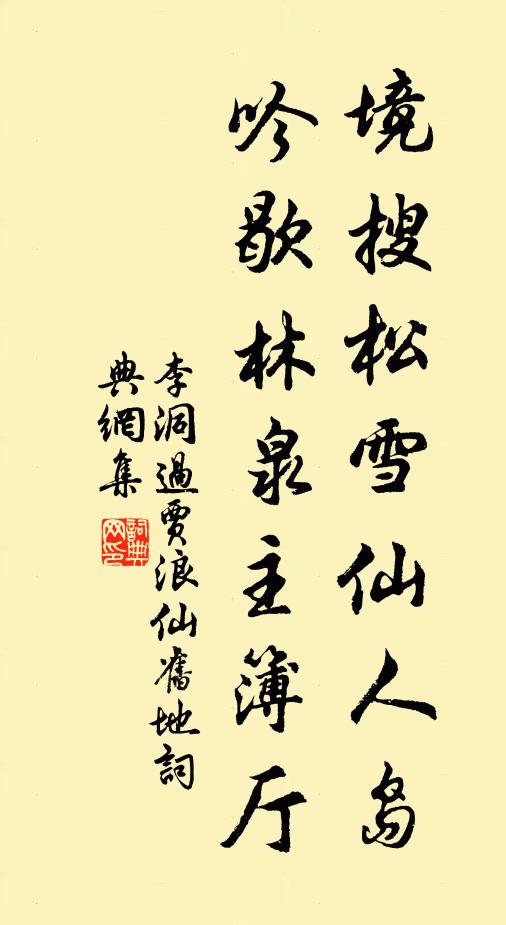 境搜松雪仙人岛
吟歇林泉主簿厅
李洞過賈浪仙舊地詞
典網集
詞典网印